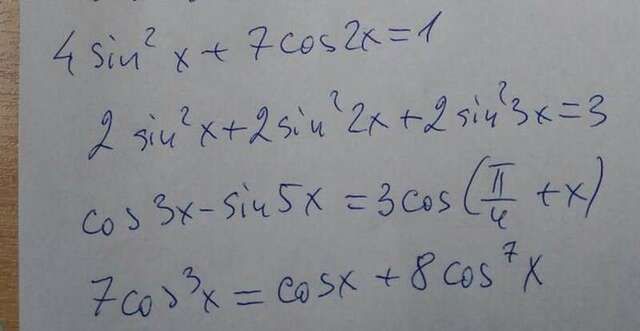 4 sin² x + 7cos2x=1
2 sin²x+2sin²2x+2sin²3x=3
cos3x-sin5x=3cos(π/4+x)
7cos³x=cosx+8cos⁷x